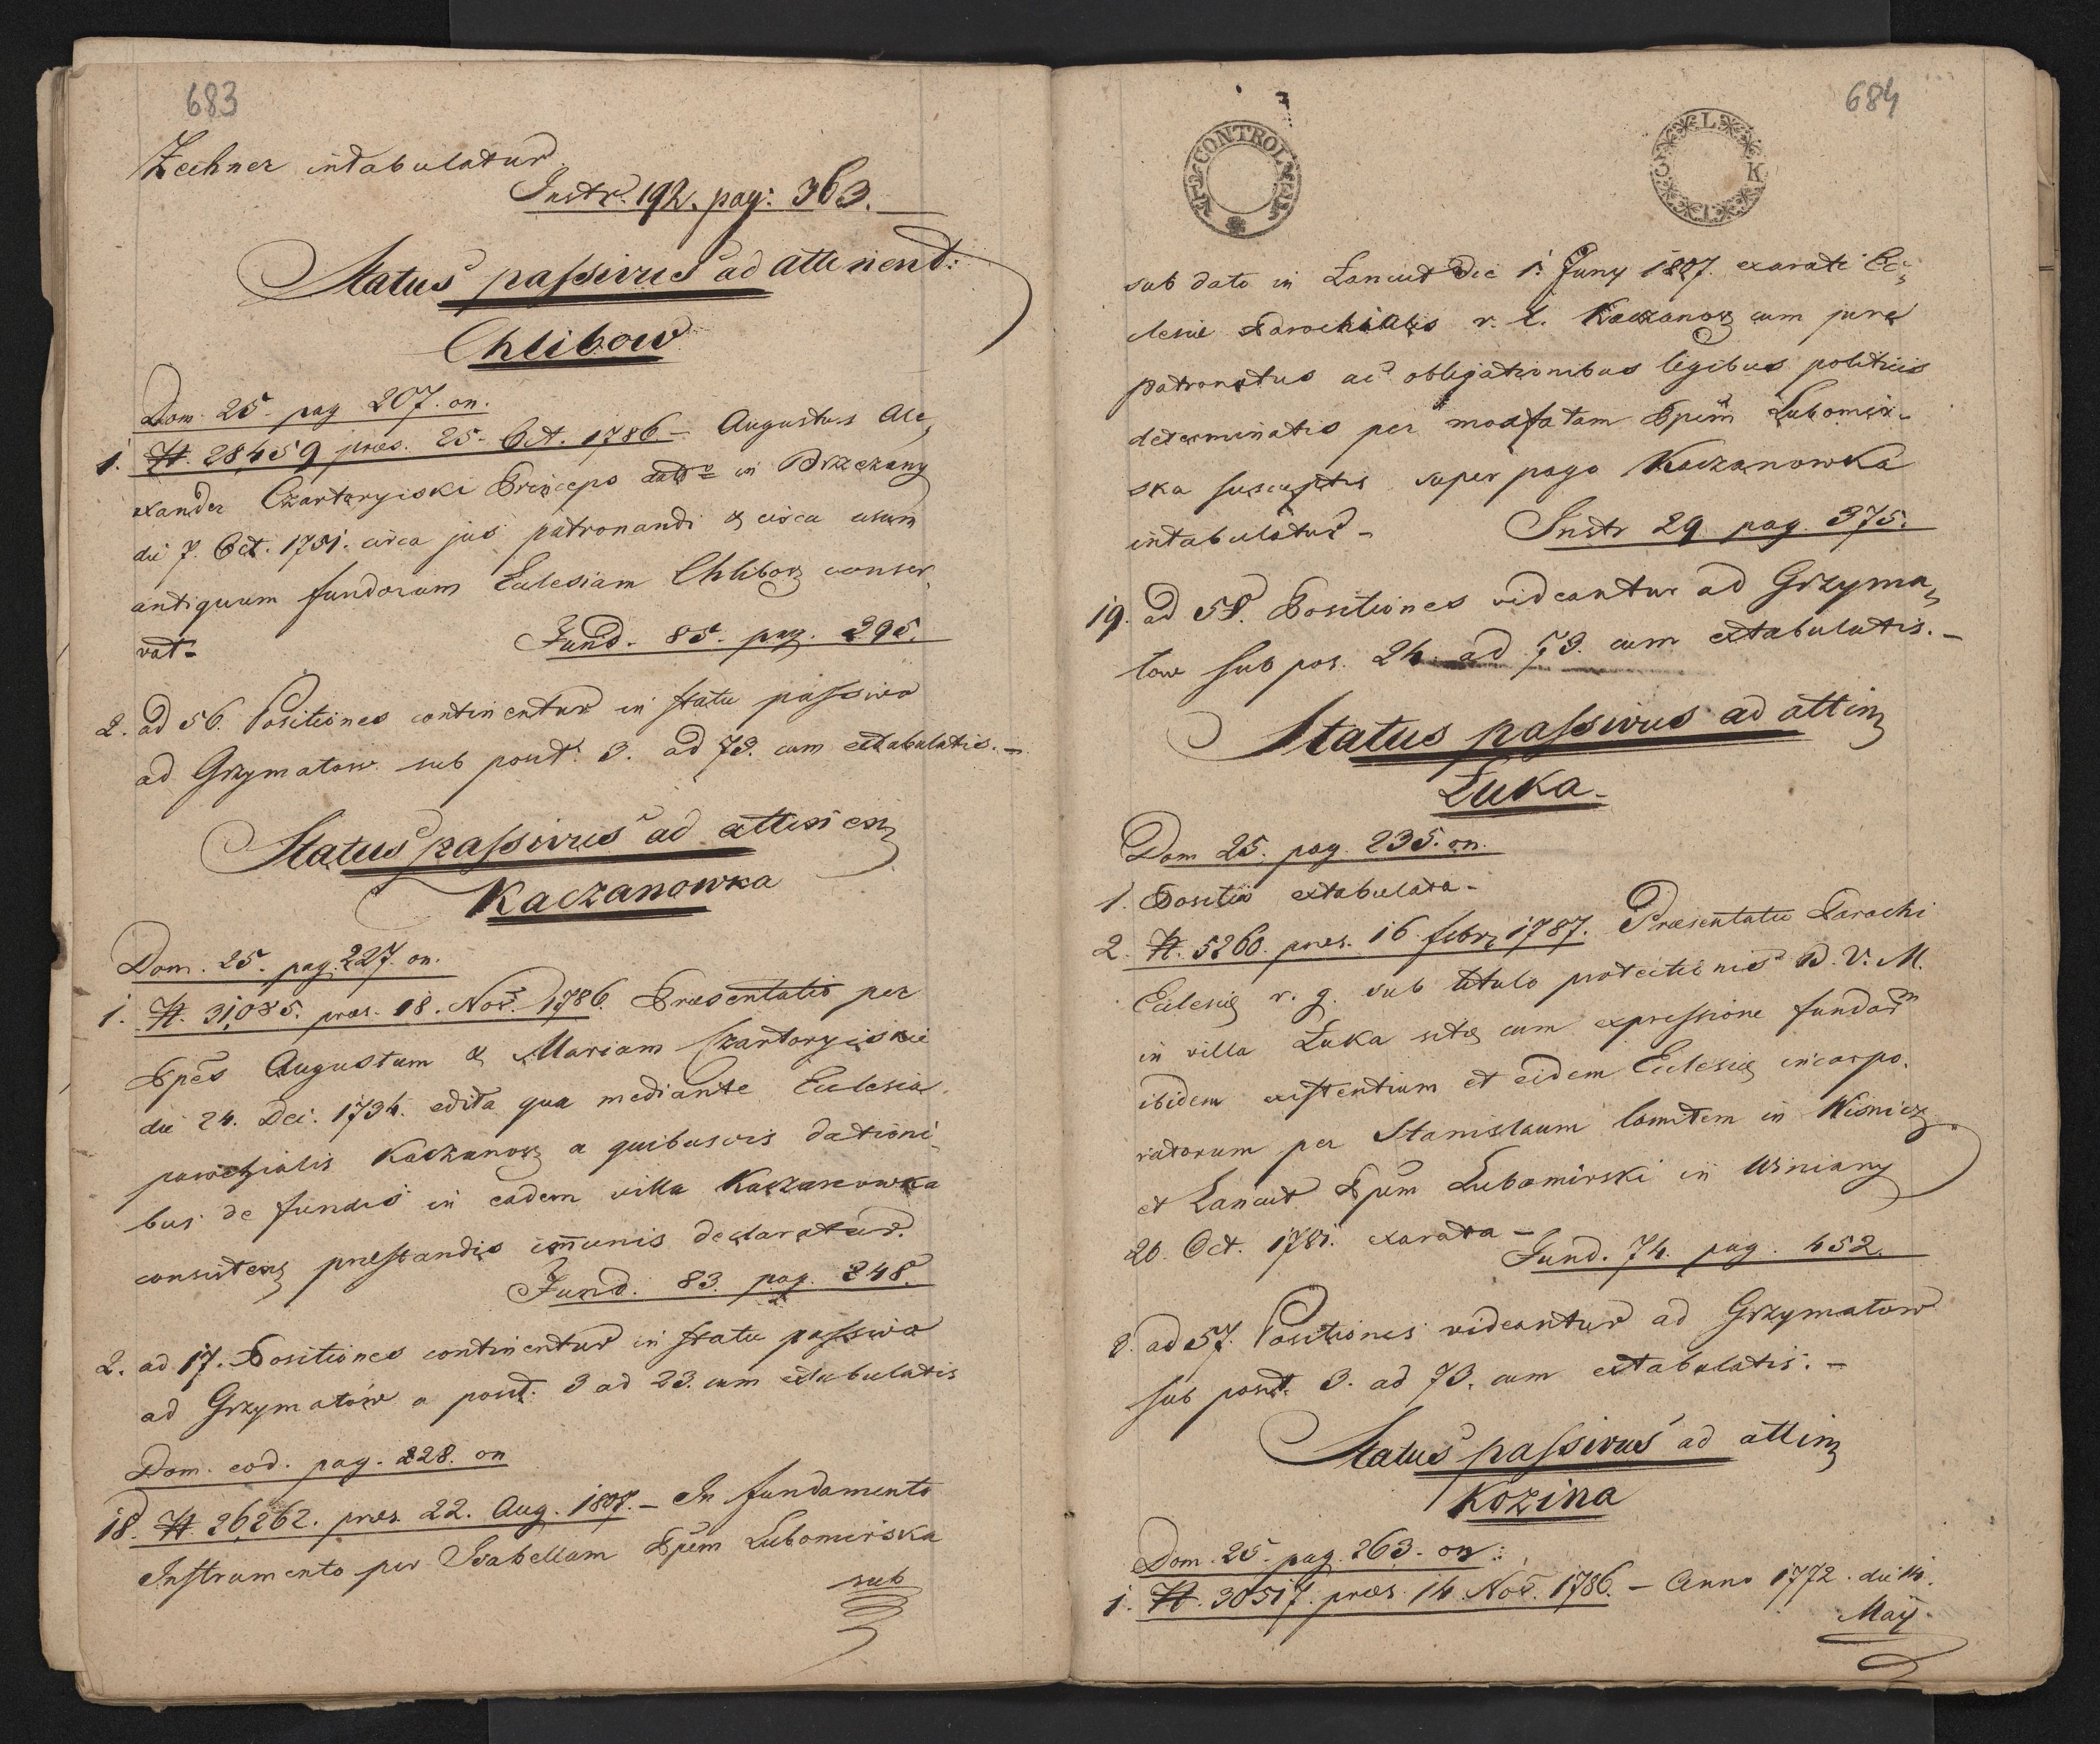 683
Zechner intabulatur
Instr. 192. pag: 363.
Status passivus ad attinent:
Chlibow
Dom. 25. pag 207. on.
1. H. 28459 praes. 25. Oct. 1786 – Augustus Ale,
xander Czartoryiski Princeps dato in Brzezany
die 7. Oct. 1751. circa jus patronandi & circa usum
antiquum fundorum Eclesiam Chlibow conser,
vat –
Fund. 85. pag. 295.
2. ad 56. Positiones continentur in statu passivo
ad Grzymatow sub posit. 3. ad 73. cum extabulatis. –
Status passivus ad attinen
Kaczanowka
Dom. 25. pag. 227. on.
1. H. 31,035. praes. 18. Nov. 1786. Praesentatio per
Ppes Augustum & Mariam Czartoryiskie
die 24. Dec. 1734. edita qua mediante Eclesia
parochialis Kaczanow a quibusvis dationi,
bus de fundis in eadem villa Kaczanowka
consisten praestandis imunis declaratur.
Fund. 83. pag. 248.
2. ad 17. Positiones continentur in statu passivo
ad Grzymatów a posit. 3 ad 23. cum extabulatis
Dom. eod. pag. 228. on
18. H. 26,262. praes. 22. Aug. 1807. – In fundamento
Instrumento per Isabellam Ppem Lubomirska
sub
684
CONTROL
L K
sub dato in Lancut die 1. Juny 1807. exarati Ec,
clesiae Parochialis r. l. Kaczanow cum jure
patronatus ac obligationibus legibus politicis
determinatis per moxfatam Ppem Lubomir,
ska susceptis super pago Kaczanowka
intabulatur – Instr 29 pag. 375.
19. ad 58. Positiones videantur ad Grzyma,
tow sub pos. 24. ad 73. cum extabulatis. –
Status passivus ad attin
Łuka –
Dom 25. pag. 235. on.
1. Positio extabulata –
2. H. 5260. praes. 16. febr 1787. Praesentatio Parochi
Eclesiae r. g. sub titulo protectionis B. V. M.
in villa Łuka sitae cum expressione fundor
ibidem existentium et eidem Eclesiae incorpo,
ratorum per Stanislaum Comitem in Wisnicz
et Lancut Ppem Lubomirski in Usniany
26. Oct. 1781. exarata –
Fund. 74. pag. 452.
3. ad 57. Positiones videantur ad Grzymatow
sub posit. 3. ad 73. cum extabulatis. –
Status passivus ad attin
Kozina
Dom. 25. pag. 263. on:
1. H. 30517. praes. 14. Nov. 1786. – Anno 1772. die 14.
Maÿ